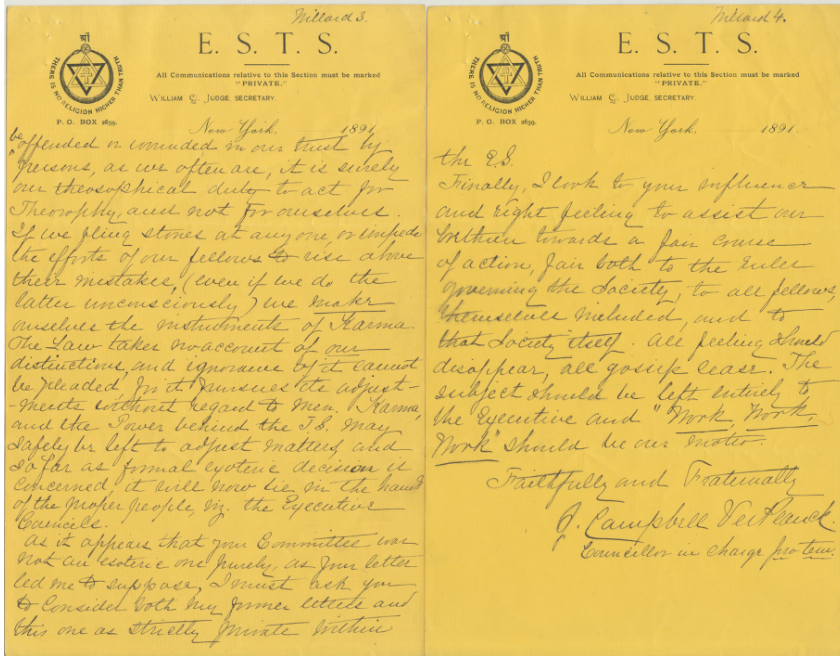 Willard 3.
श्री
THERE IS NO RELIGION HIGHER THAN TRUTH
E. S. T. S.
All Communications relative to this Section must be marked
"PRIVATE."
WILLIAM Q. JUDGE, SECRETARY.
P. O. BOX 2659.
New York, 1891
be
offended or wounded in our trust by
persons, as we often are, it is surely
our theosophical duty to act for
Theosophy, and not for ourselves.
If we fling stones at anyone, or impede
the efforts of our fellows to rise above
their mistakes, (even if we do the
latter unconsciously,) we make
ourselves the instruments of Karma.
The Law takes no account of our
distinctions, and ignorance of it cannot
be pleaded, for it pursues its adjust-
-ments without regard to men. Karma,
and the Power behind the T.S. may
safely be left to adjust matters, and
so far as formal exoteric decision is
concerned, it will now lie in the hands
of the proper people, viz. the Executive
Councils.
As it appears that your Committee was
not an esoteric one purely, as your letter
led me to suppose, I must ask you
to consider both my former letters and
this one as strictly private within
Willard 4.
श्री
THERE IS NO RELIGION HIGHER THAN TRUTH
E. S. T. S.
All Communications relative to this Section must be marked
"PRIVATE."
WILLIAM Q. JUDGE, SECRETARY.
P. O. BOX 2659.
New York, 1891.
the E.S.
Finally, I look to your influence
and right feeling to assist our
brethren towards a fair course
of action, fair both to the Rules
governing the Society, to all fellows,
themselves included, and to
that Society itself. All feeling should
disappear, all gossip cease. The
subject should be left entirely to
the Executive and "Work, Work,
Work" should be our motto.
Faithfully and Fraternally
J. Campbell Ver Planck
Councillor in charge pro tem.